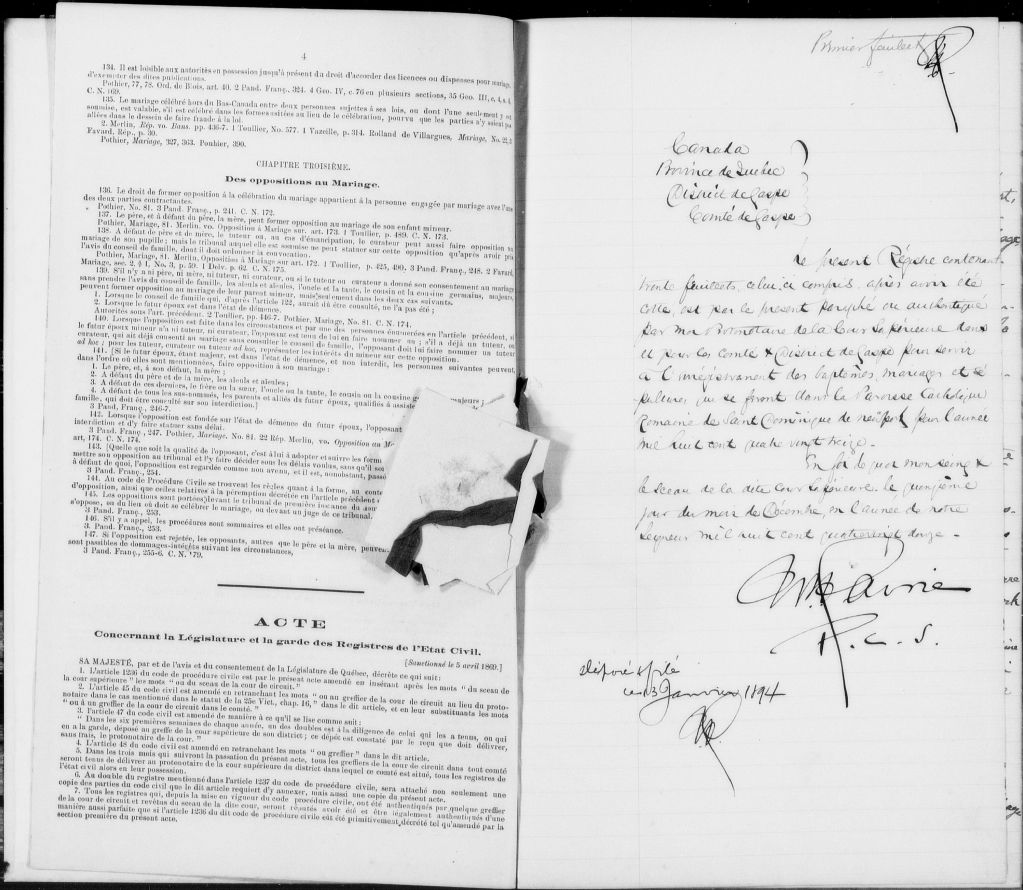 4
134. Il est loisible aux autorités en possession jusqu'à présent du droit d'accorder des licences ou dispenses pour mariage,
d'exempter des dites publications.
Pothier, 77, 78. Ord. de Blois, art. 40. 2 Pand. Franç., 324. 4 Geo. IV, c. 76 en plusieurs sections, 35 Geo. III, c, 4, s. 4,
C. N. 169.
135. Le mariage célébré hors du Bas-Canada entre deux personnes sujettes à ses lois, ou dont l'une seulement y est
soumise, est valable, s'il est célébré dans les formes usitées au lieu de la célébration, pourvu que les parties n'y soient pas
allées dans le dessein de faire fraude à la loi.
2. Merlin, Rép. vo. Bans. pp. 436-7. 1 Toullier, No. 577. 1 Vazeille, p. 314. Rolland de Villargues, Mariage, No.
Favard, Rép., p. 30.
Pothier, Mariage, 327, 363. Pouhier, 390.
CHAPITRE TROISIÈME.
Des oppositions au Mariage.
136. Le droit de former opposition à la célébration du mariage appartient à la personne engagée par mariage avec l'une
des deux parties contractantes.
Pothier, No. 81. 3 Pand. Franç., p. 241. C. N. 172.
137. Le père, et à défaut du père, la mère, peut former opposition au mariage de son enfant mineur.
Pothier, Mariage, 81. Merlin, vo. Opposition à Mariage sur. art. 173. 1 Toullier, p. 489. C. N. 173.
138. A défaut de père et de mère, le tuteur ou, au cas d'émancipation, le curateur peut aussi faire opposition au
mariage de son pupille; mais le tribunal auquel elle est soumise ne peut statuer sur cette opposition qu'après avoir pris
l'avis du conseil de famille, dont il doit ordonner la convocation.
Pothier, Mariage, 81. Merlin, Opposition à Mariage sur art. 172. 1 Toullier, p. 425, 490. 3 Pand. Franç., 248. 2 Favard
Mariage, sec. 2, § 1, No. 3, p. 59. 1 Delv. p. 62. C. N. 175.
139. S'il n'y a ni père, ni mère, ni tuteur, ni curateur, ou si le tuteur ou curateur a donné son consentement au mariage
sans prendre l'avis du conseil de famille, les aïeuls et aïeules, l'oncle et la tante, le cousin et la cousine germains, majeurs,
peuvent former opposition au mariage de leur parent mineur, mais seulement dans les deux cas suivants.
1. Lorsque le conseil de famille qui, d'après l'article 122, aurait dû être consulté, ne l'a pas été;
2. Lorsque le futur époux est dans l'état de démence.
Autorités sous l'art. précédent. 2 Toullier, pp. 446-7. Pothier, Mariage, No. 81. C. N. 174.
140. Lorsque l'opposition est faite dans les circonstances et par une des personnes énumérées en l'article précédent, si
le futur époux mineur n'a ni tuteur, ni curateur, l'opposant est tenu de lui en faire nommer un; s'il a déjà un tuteur, ou
curateur, qui ait déjà consenti au mariage sans consulter le conseil de famille, l'opposant doit lui faire nommer un tuteur
ad hoc; pour les tuteur, curateur ou tuteur ad hoc, représenter les intérêts du mineur sur cette opposition.
141. [Si le futur époux, étant majeur, est dans l'état de démence, et non interdit, les personnes suivantes peuvent,
dans l'ordre où elles sont mentionnées, faire opposition à son mariage:
1. Le père, et, à son défaut, la mère;
2. A défaut du père et de la mère, les aïeuls et aïeules;
3. A défaut de ces derniers, le frère ou la sœur, l'oncle ou la tante, le cousin ou la cousine g majeurs;
4. A défaut de tous les sus-nommés, les parents et alliés du futur époux, qualifiés à assiste
famille, qui doit être consulté sur son interdiction.]
3 Pand. Franç., 246-7.
142. Lorsque l'opposition est fondée sur l'état de démence du futur époux, l'opposant
interdiction et d'y faire statuer sans délai.
3 Pand. Franç., 247. Pothier, Mariage. No. 81. 22 Rép. Merlin, vo. Opposition au M
art, 174. C. N. 174.
143. [Quelle que soit la qualité de l'opposant, c'est à lui à adopter et suivre les form
mettre son opposition au tribunal et l'y faire décider sous les délais voulus, sans qu'il soi
à défaut de quoi, l'opposition est regardée comme non avenu, et il est, nonobstant, passé
3 Pand. Franç., 254.
144. Au code de Procédure Civile se trouvent les règles quant à la forme, au conte
d'opposition, ainsi que celles relatives à la péremption décrétée en l'article précédent
145. Les oppositions sont portées devant le tribunal de première instance du
s'oppose, ou du lieu où doit se célébrer le mariage, ou devant un juge de ce tribunal.
3 Pand. Franç., 253.
146. S'il y a appel, les procédures sont sommaires et elles ont préséance.
3. Pand. Franç., 253.
147. Si l'opposition est rejetée, les opposants, autres que le père et la mère, peuven
sont passibles de dommages-intérêts suivant les circonstances,
3 Pand. Franç., 255-6. C. N. 179.
ACTE
Concernant la Législature et la garde des Registres de l'Etat Civil.
[Sanctionné le 5 avril 1869.]
SA MAJESTÉ, par et de l'avis et du consentement de la Législature de Québec, décrète ce qui suit:
1. L'article 1236 du code de procédure civile est par le présent acte amendé en insérant après les mots "du sceau de
la cour supérieure" les mots "ou du sceau de la cour de circuit."
2. L'article 45 du code civil est amendé en retranchant les mots "ou au greffier de la cour de circuit au lieu du proto-
notaire dans le cas mentionné dans le statut de la 25e Vict., chap. 16," dans le dit article, et en leur substituants les mots
"ou à un greffier de la cour de circuit dans le comté."
3. l'article 47 du code civil est amendé de manière à ce qu'il se lise comme suit:
"Dans les six premières semaines de chaque année, un des doubles est à la diligence de celui qui les a tenus, ou qui
en a la garde, déposé au greffe de la cour supérieure de son district; ce dépôt est constaté par le reçu que doit délivrer,
sans frais, le protonotaire de la cour."
4. L'article 48 du code civil est amendé en retranchant les mots "ou greffier" dans le dit article.
5. Dans les trois mois qui suivront la passation du présent acte, tous les greffiers de la cour de circuit dans tout comté
seront tenus de délivrer au protonotaire de la cour supérieure du district dans lequel ce comté est situé, tous les registres de
l'état civil alors en leur possession.
6. Au double du registre mentionné dans l'article 1237 du code de procédure civile, sera attaché non seulement une
copie des parties du code civil que le dit article requiert d'y annexer, mais aussi une copie du présent acte.
7. Tous les registres qui, depuis la mise en vigueur du code procédure civile, ont été authentiqués par quelque greffier
de la cour de circuit et revêtus du sceau de la dite cour, seront réputés avoir été et être légalement authentiqués d'une
manière aussi parfaite que si l'article 1236 du dit code de procédure civile eût été primitivement décrété tel qu'amendé par la
section première du présent acte.
Premier feuillet
Canada
Province de Québec
District de Gaspé
Comté de Gaspé
Le présent Régistre contenant
trente feuillets, celui-ci compris, après avoir été
cotté, est par le present paraphé ou authentiqué
par moi Protonotaire de la Cour Supérieure dans
et pour les Comté & District de Gaspé pour servir
à l'enrégistrement des baptêmes, mariages et sé
pultures qui se feront dans la Paroisse Catholique
Romaine de Saint Dominique de Newport pour l'année
mil huit cent quatre vingt treize.
En foi de quoi mon seing &
le sceau de la dite Cour Supérieure, le quinzième
jour du mois de Décembre en l'année de notre
Seigneur mil huit cent quatrevingt douze.
P. C. S.
Déposé &
ce 13 Janvier 1894